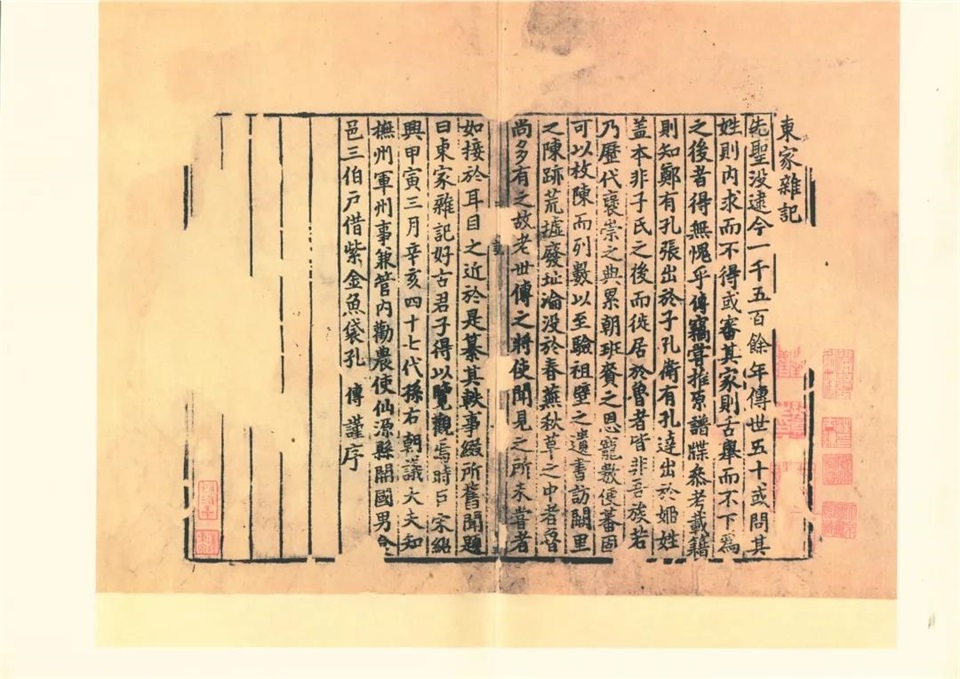 東家雜記
先聖没逮今一千五百餘年傳世五十或問其
姓則内求而不得或審其家則舌舉而不下為
之後者得無愧乎傳竊嘗推原譜牒叅考載籍
則知鄭有孔張出於子孔衛有孔達出於姓
蓋本非子氏之後而徙居於魯者皆非吾族若
乃歷代褒崇之典累朝班賚之恩寵數便蕃固
可以枚陳而列數以至驗祖壁之遺書訪闕里
之陳跡荒墟廢址淪没於春蕪秋草之中者魯
尚多有之故老世傳之將使聞見之所未嘗者
如接於耳目之近於是纂其軼事綴所舊聞題
曰東家雜記好古君子得以覽觀焉時巨宋紹
興甲寅三月辛亥四十七代孫右朝議大夫知
撫州軍州事兼管内勸農使仙源縣開國男食
邑三伯戶借紫金魚袋孔 傳謹序